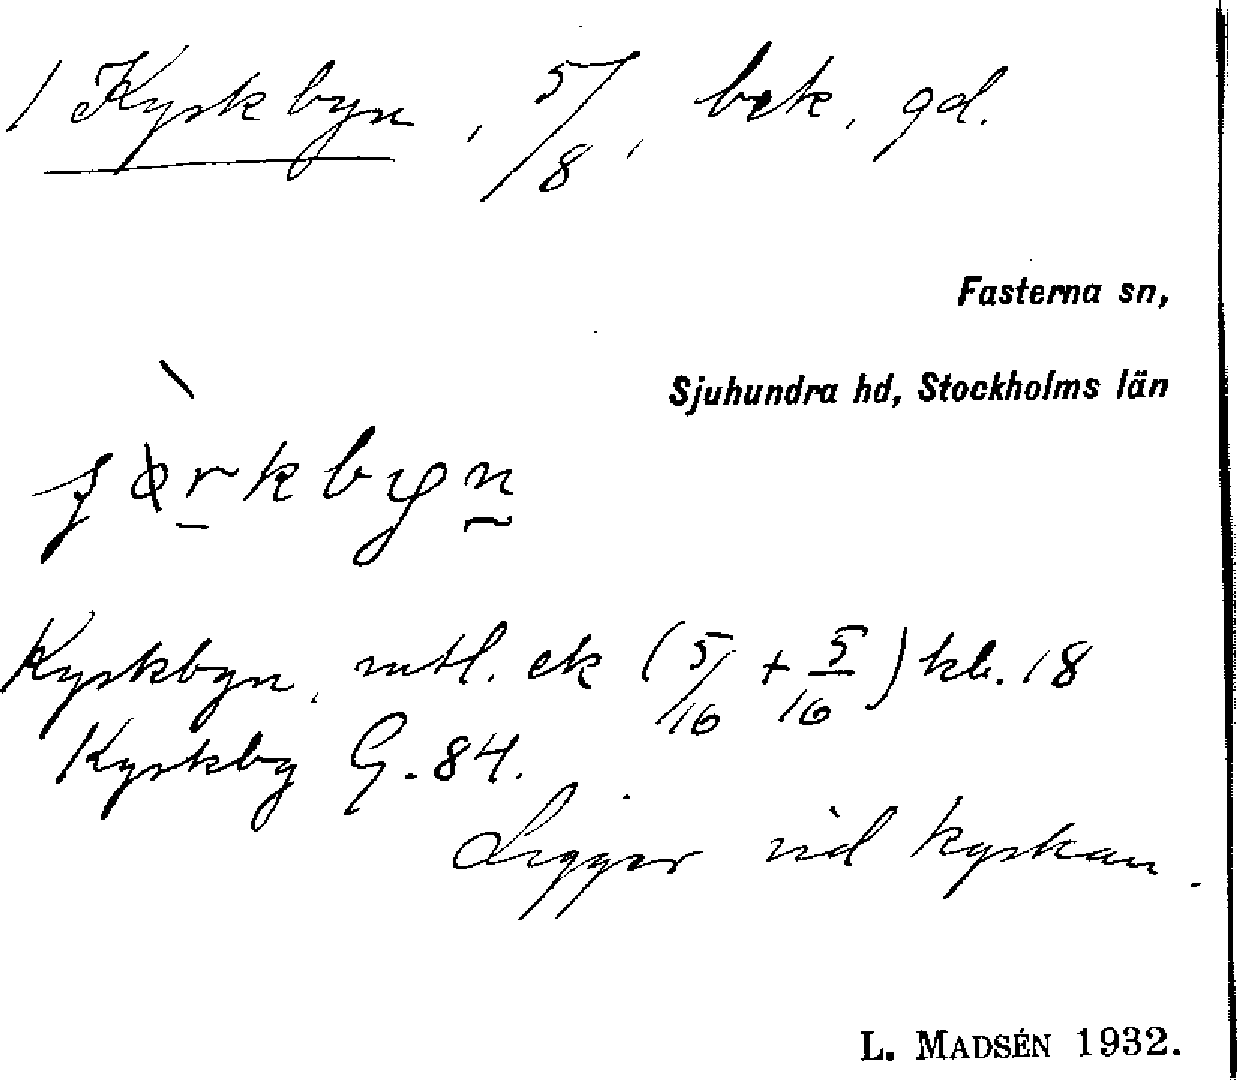 1 Kyrkbyn, 5/8, bek. gd.
Fasterna sn,
Sjuhundra hd, Stockholms län
Kyrkbyn, mtl. ek (5/16 + 5/16) kb. 18
Kyrkby G. 84.
Ligger vid kyrkan.
L. MADSÉN 1932.